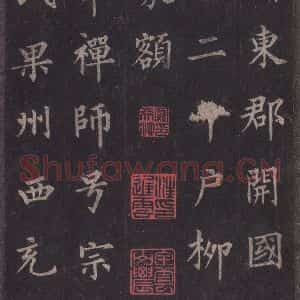 東郡開國
二千戶柳
額
禪師号宗
果州西充
Shufawang.CN